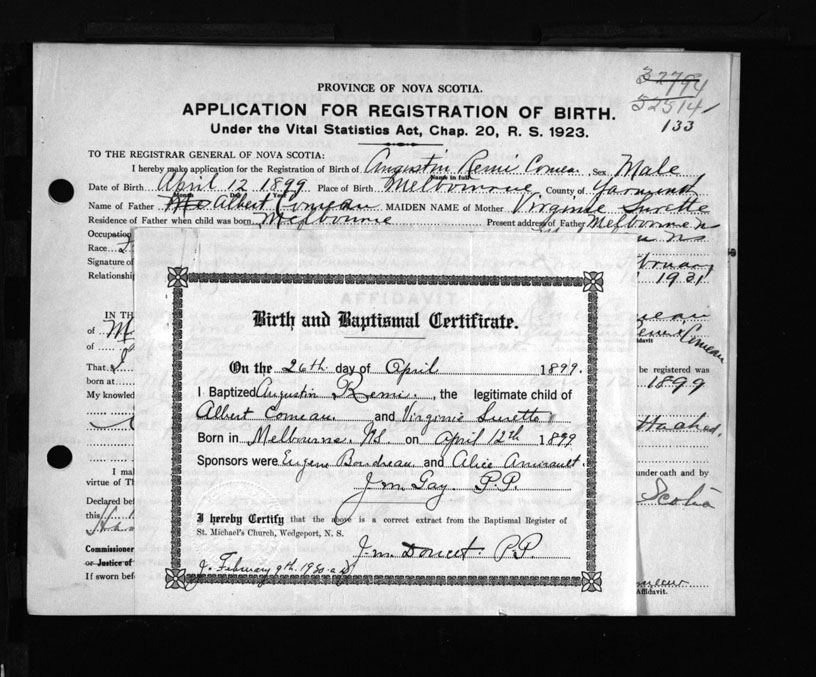 32794
52514
133
PROVINCE OF NOVA SCOTIA.
APPLICATION FOR REGISTRATION OF BIRTH.
Under the Vital Statistics Act, Chap. 20, R. S. 1923.
TO THE REGISTRAR GENERAL OF NOVA SCOTIA:
I hereby make application for the Registration of Birth of Augustin Remi Comeau Sex Male
Name in full
Date of Birth April 12 1899 Place of Birth Melbourne County of Yarmouth
Month Day Year
Name of Father Albert Comeau MAIDEN NAME of Mother Virginie Surette
Residence of Father when child was born Melbourne Present address of Father Melbourne NS
Occupation NS
Race
Signature of
Relationship 1931
AFFIDAVIT
IN TH
of M Comeau
of
That
be registered was
born at 1899
My knowled
I mal under oath and by
virtue of Th
Declared bef Scotia
this
Commissioner
or Justice of
If sworn befo Affidavit.
Birth and Baptismal Certificate.
On the 26th day of April 1899.
I Baptized Augustin Remi., the legitimate child of
Albert Comeau and Virginie Surette
Born in Melbourne. NS on April 12th 1899
Sponsors were Eugene Boudreau and Alice Amirault.
J m Gay P.P.
I hereby Certify that the above is a correct extract from the Baptismal Register of
St. Michael's Church, Wedgeport, N. S.
J. m. Doucet. P.P.
February 9th. 1930 a.d.